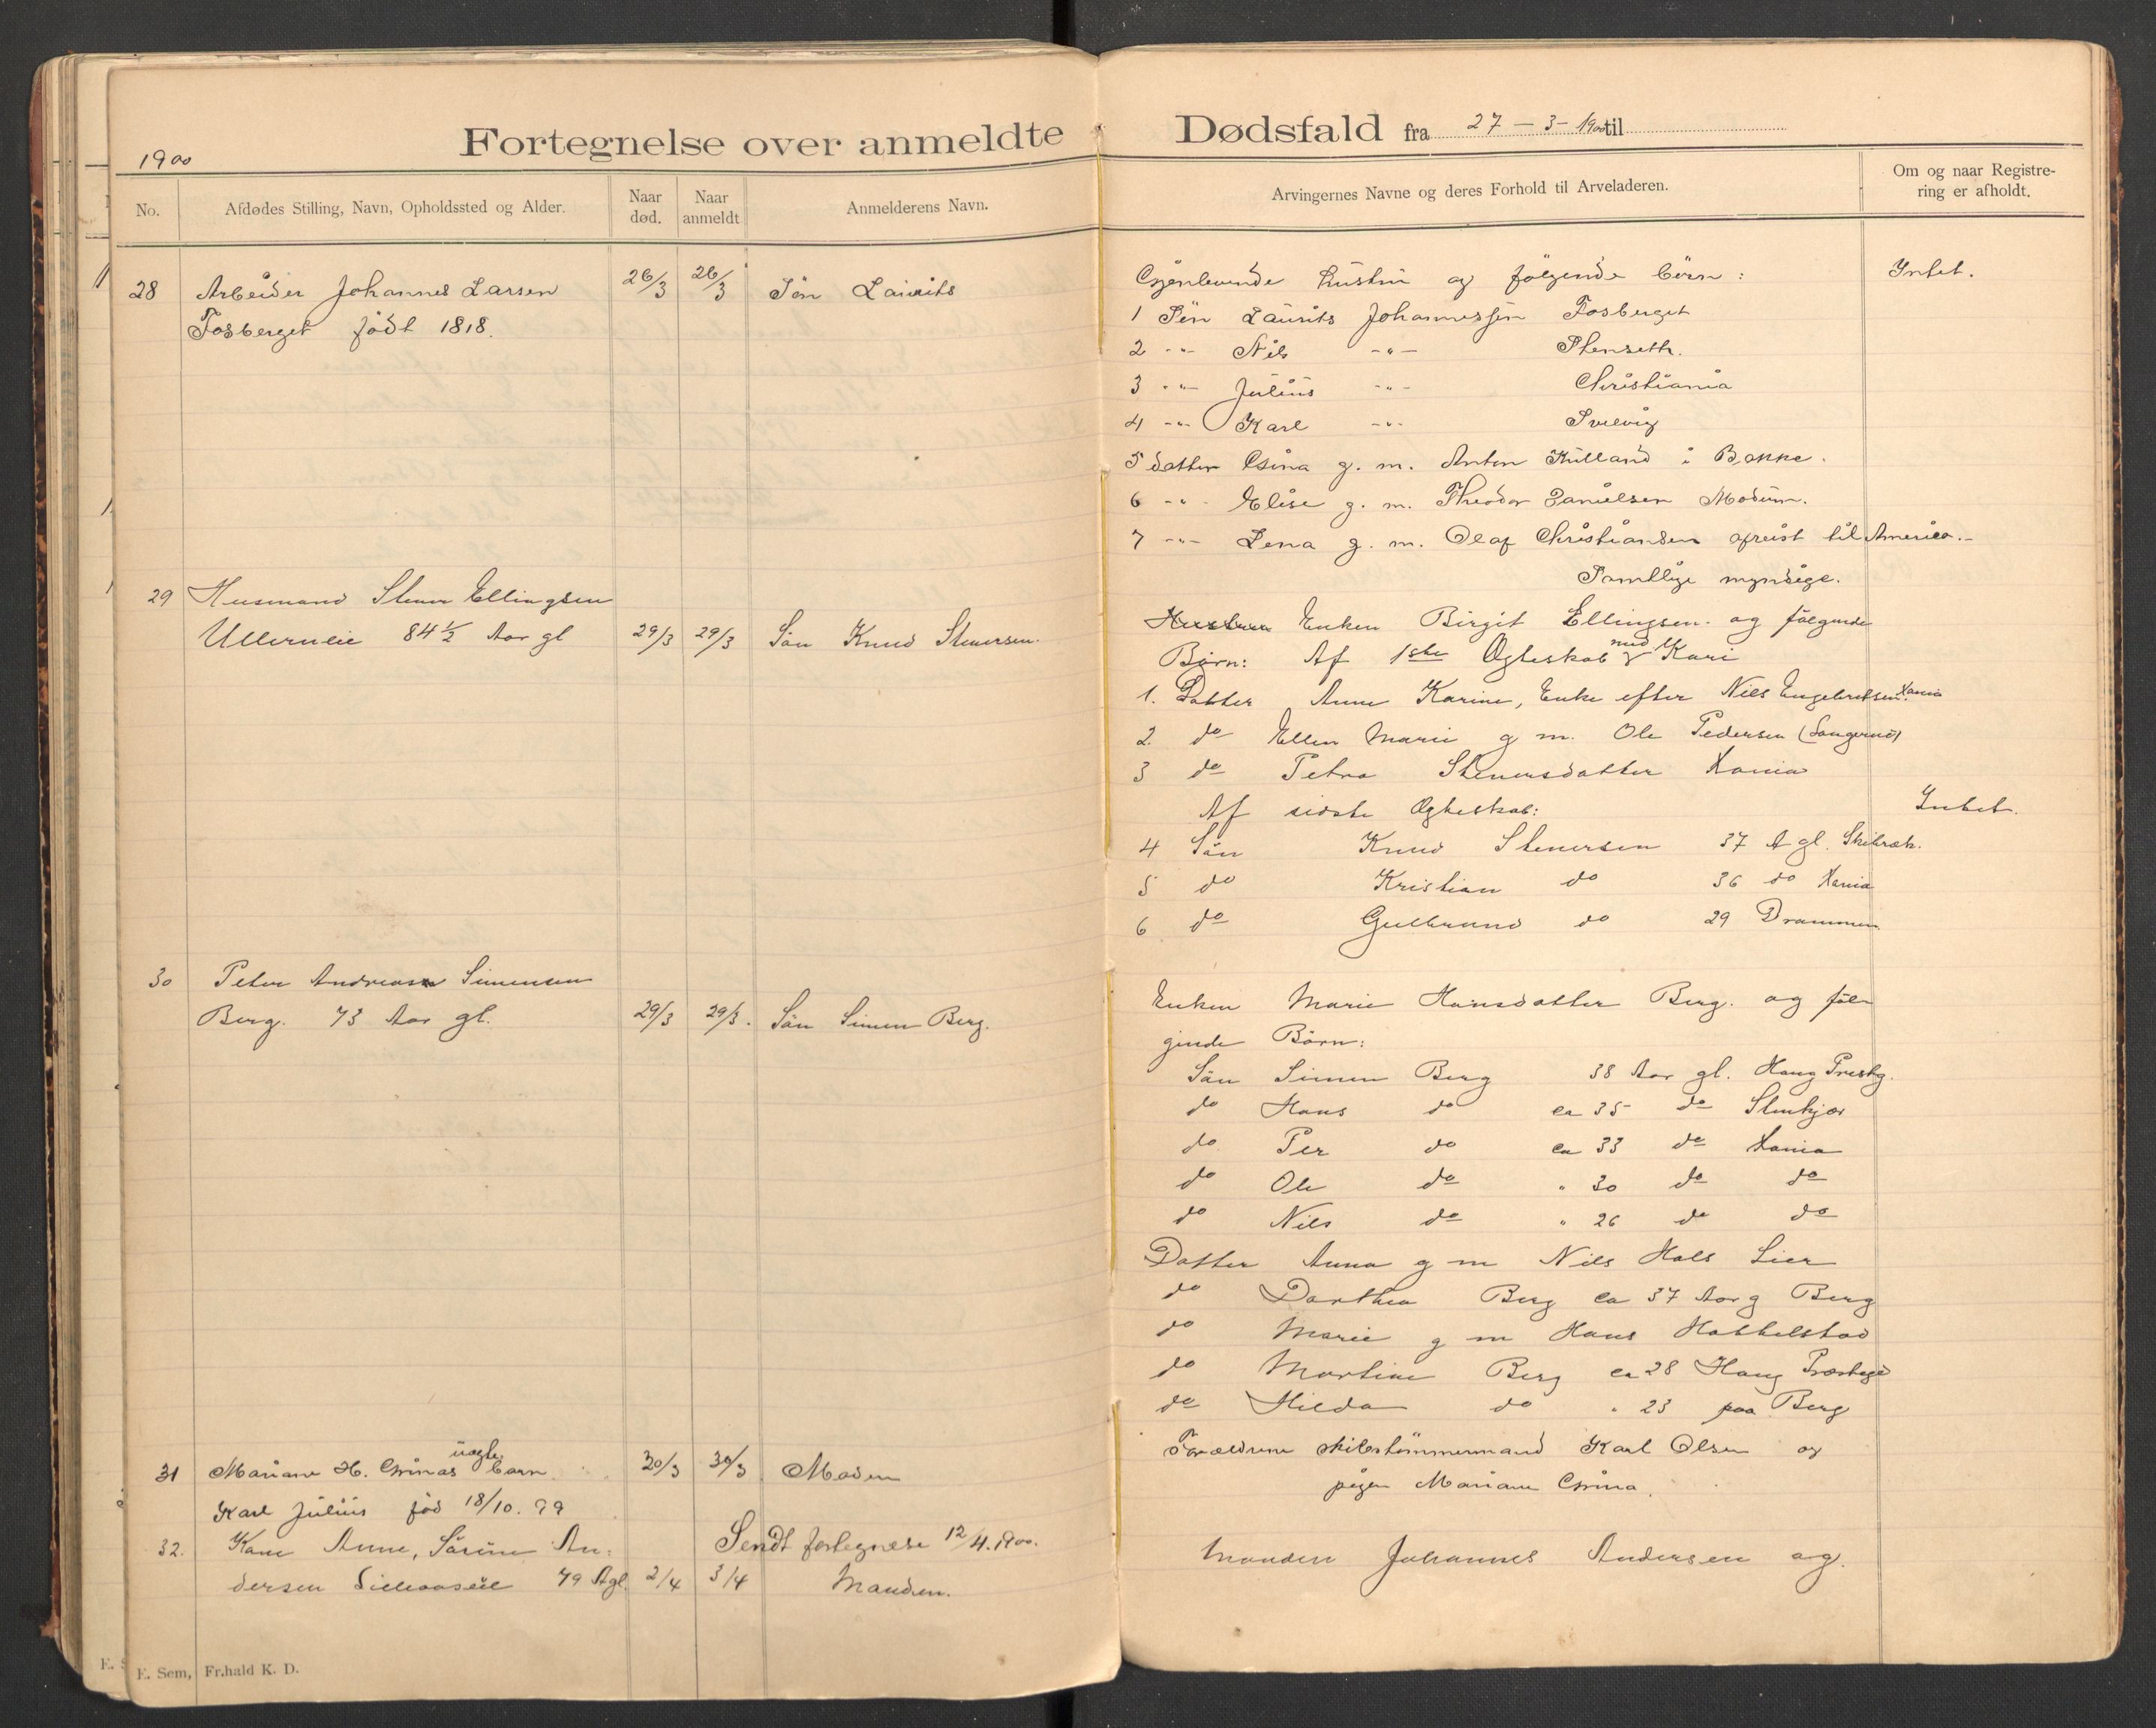 Fortegnelse over anmeldte
1900
No.
Afdødes Stilling, Navn, Opholdssted og Alder.
Naar død.
Naar anmeldt
Anmelderens Navn.
28 Arbeider Johannes Larsen 26/3 26/3 Sön Laurits
Fosberget födt 1818.
29 Husmand Stener Ellingsen
Ullerneie 84 1/2 Aar gl 29/3 29/3 Sön Knud Stenersen.
30 Peter Andreas Simensen
Berg. 73 Aar gl. 29/3 29/3. Sön Simen Berg.
uægte
31 Mariane H. Grinas barn 30/3 30/3 Moderen
Karl Julius föd 18/10. 99
Sendt fortegnelse 12/4. 1900.
32. Kone Anne, Sörine An:
dersen 79 A gl. 2/4 3/4 Manden.
E. Sem, Fr.hald K. D.
Dødsfald fra 27-3-1900 til
Arvingernes Navne og deres Forhold til Arveladeren.
Om og naar Registre-
ring er afholdt.
Gjenlevende hustru og følgende börn: Intet.
1 Sön Laurits Johannessen Fosberget
2 -"- Nils -"- Stenseth.
3 -"- Julius -"- Christiania
4 -"- Karl -"- Svelvig
5 datter Gina g. m. Anton Kulland i Bakke.
6 -"- Elise g. m. Theodor Danielsen Modum.
7 -"- Lena g. m. Olaf Christiansen afreist til America.-
Samtlige myndige.
Hustru Enken Birgit Ellingsen og følgende
Børn: Af 1ste Ægteskab med Kari
1. Datter Anne Karine, Enke efter Nils Engebretsen. Xania
2. do Ellen Marie g m. Ole Pedersen (Langerud)
3 do Petra Stenersdatter Xania
Af sidste Ægteskab: Intet.
4 Sön Knud Stenersen 37 A gl. Skibræk.
5 do Kristian do 36 do Xania
6 do Gulbrand do 29 Drammen
Enken Marie Hansdatter Berg. og föl-
gende Börn:
Sön Simen Berg 38 Aar gl. Haug Prestg.
do Hans do ca 35 do Stenkjær
do Per do ca 33 do Xania
do Ole do " 30 do do
do Nils do " 26 do do
Datter Anna g m Nils Hals Lier
do Dorthea Berg ca 37 Aar g Berg
do Marie g m Hans Hobbelstad
do Martine Berg ca 28 Haug Præstegd
do Hilda do " 23 paa Berg
Forældrene skibstömmermand Karl Olsen og
pigen Mariane Grina.
Manden Johannes Andersen og.